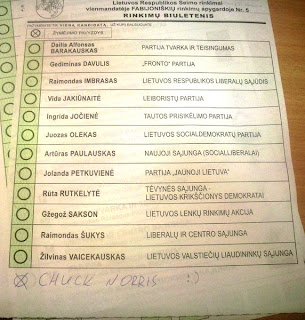 Lietuvos Respublikos Seimo rinkimai
vienmandatėje FABIJONIŠKIŲ rinkimų apygardoje Nr. 5
RINKIMŲ BIULETENIS
ŽYMĖJIMO PAVYZDYS
Dailis Alfonsas BARAKAUSKAS PARTIJA TVARKA IR TEISINGUMAS
Gediminas DAVULIS „FRONTO“ PARTIJA
Raimondas IMBRASAS LIETUVOS RESPUBLIKOS LIBERALŲ SĄJŪDIS
Vida JAKIŪNAITĖ LEIBORISTŲ PARTIJA
Ingrida JOČIENĖ TAUTOS PRISIKĖLIMO PARTIJA
Juozas OLEKAS LIETUVOS SOCIALDEMOKRATŲ PARTIJA
Artūras PAULAUSKAS NAUJOJI SĄJUNGA (SOCIALLIBERALAI)
Jolanta PETKUVIENĖ PARTIJA „JAUNOJI LIETUVA“
Rūta RUTKELYTĖ TĖVYNĖS SĄJUNGA - LIETUVOS KRIKŠČIONYS DEMOKRATAI
Gžegož SAKSON LIETUVOS LENKŲ RINKIMŲ AKCIJA
Raimondas ŠUKYS LIBERALŲ IR CENTRO SĄJUNGA
Žilvinas VAICEKAUSKAS LIETUVOS VALSTIEČIŲ LIAUDININKŲ SĄJUNGA
CHUCK NORRIS :)